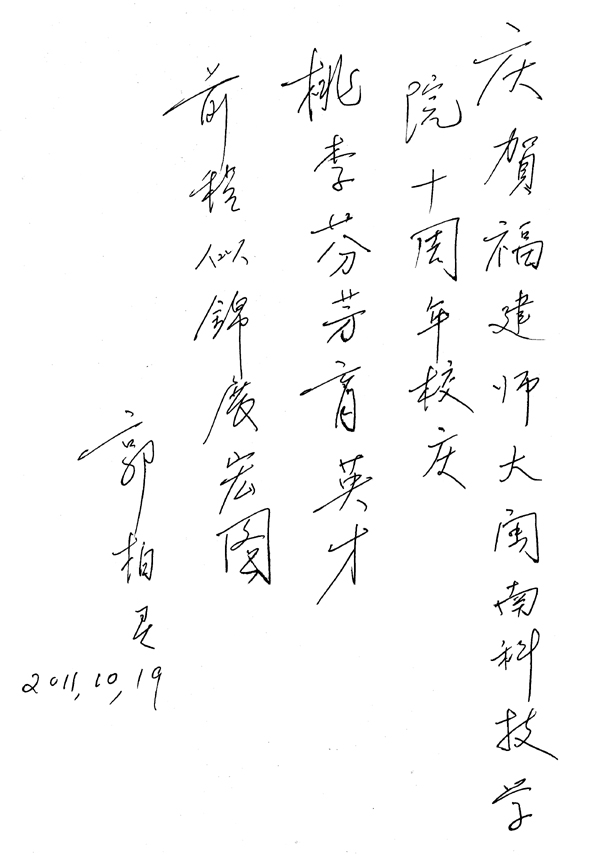 庆賀福建师大闽南科技学
院十周年校庆
桃李芬芳育英才
前程似錦展宏图
郭柏灵
2011,10,19